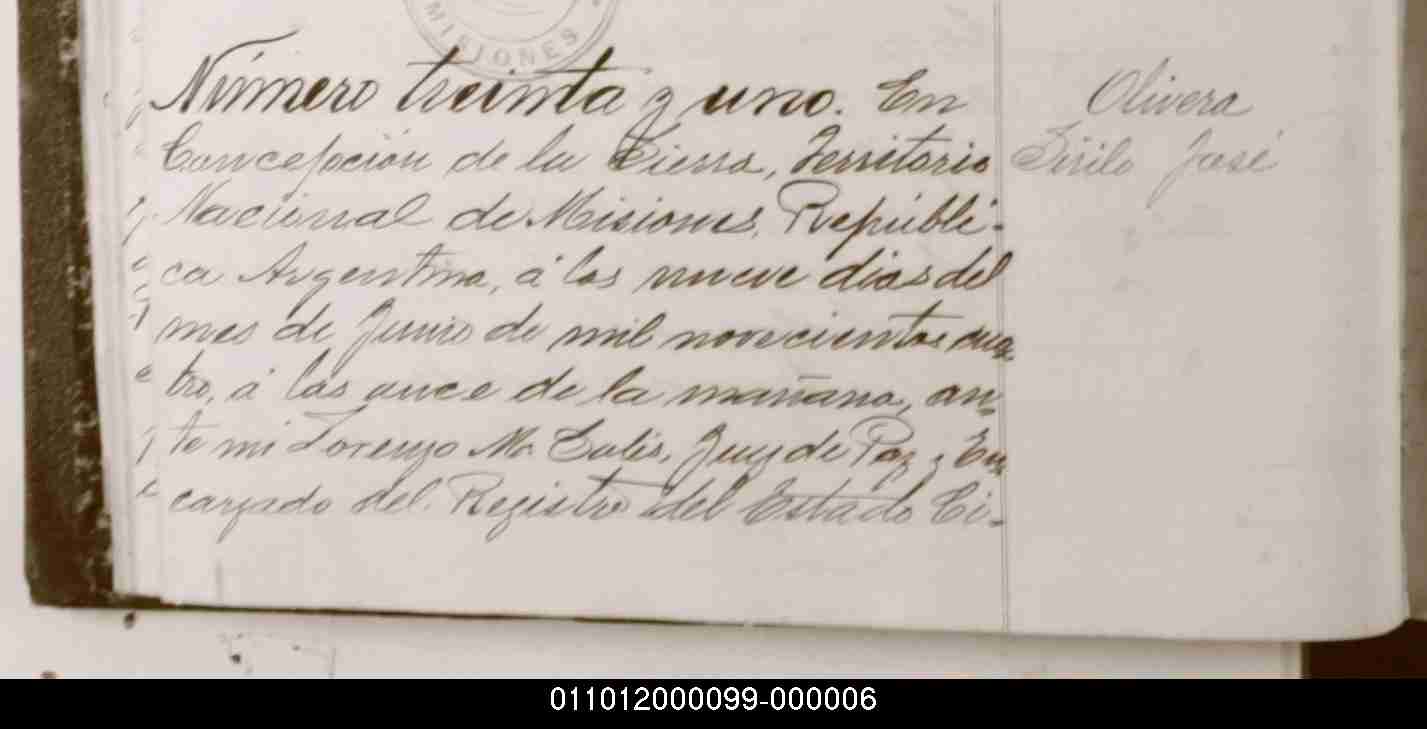 MISIONES
Número treinta y uno. En
Concepción de la Sierra, Territorio
Nacional de Misiones, Repúbli-
ca Argentina, á los nueve dias del
mes de Junio de mil novecientos cua-
tro, á las once de la mañana, an-
te mi Lorenzo Ma. Juez de Paz y En-
cargado del Registro del Estado Ci-
Olivera
Sirilo José
011012000099-000006